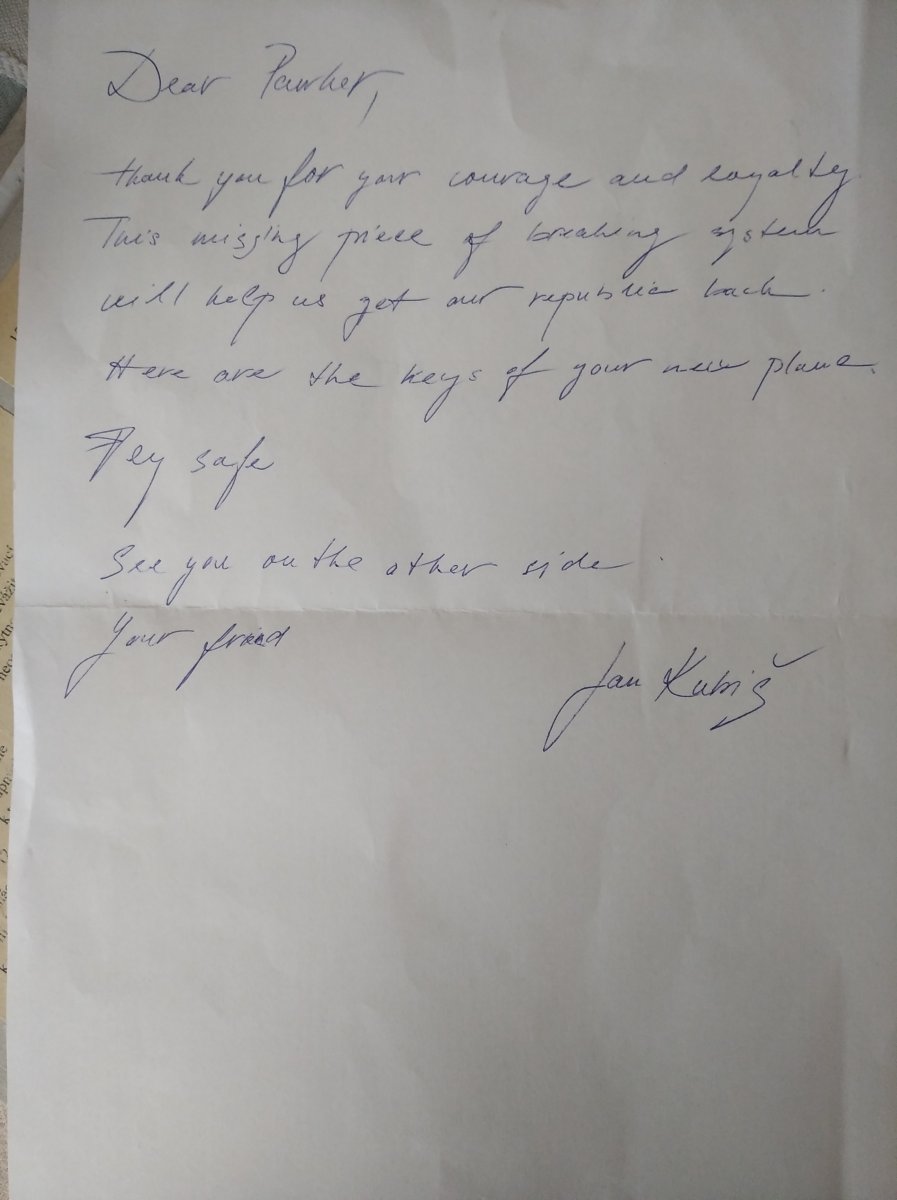 Dear Parker,
thank you for your courage and loyalty.
This missing piece of breaking system
will help us get our republic back.
Here are the keys of your new plane.
Fly safe
See you on the other side.
Your friend
Jan Kubiš